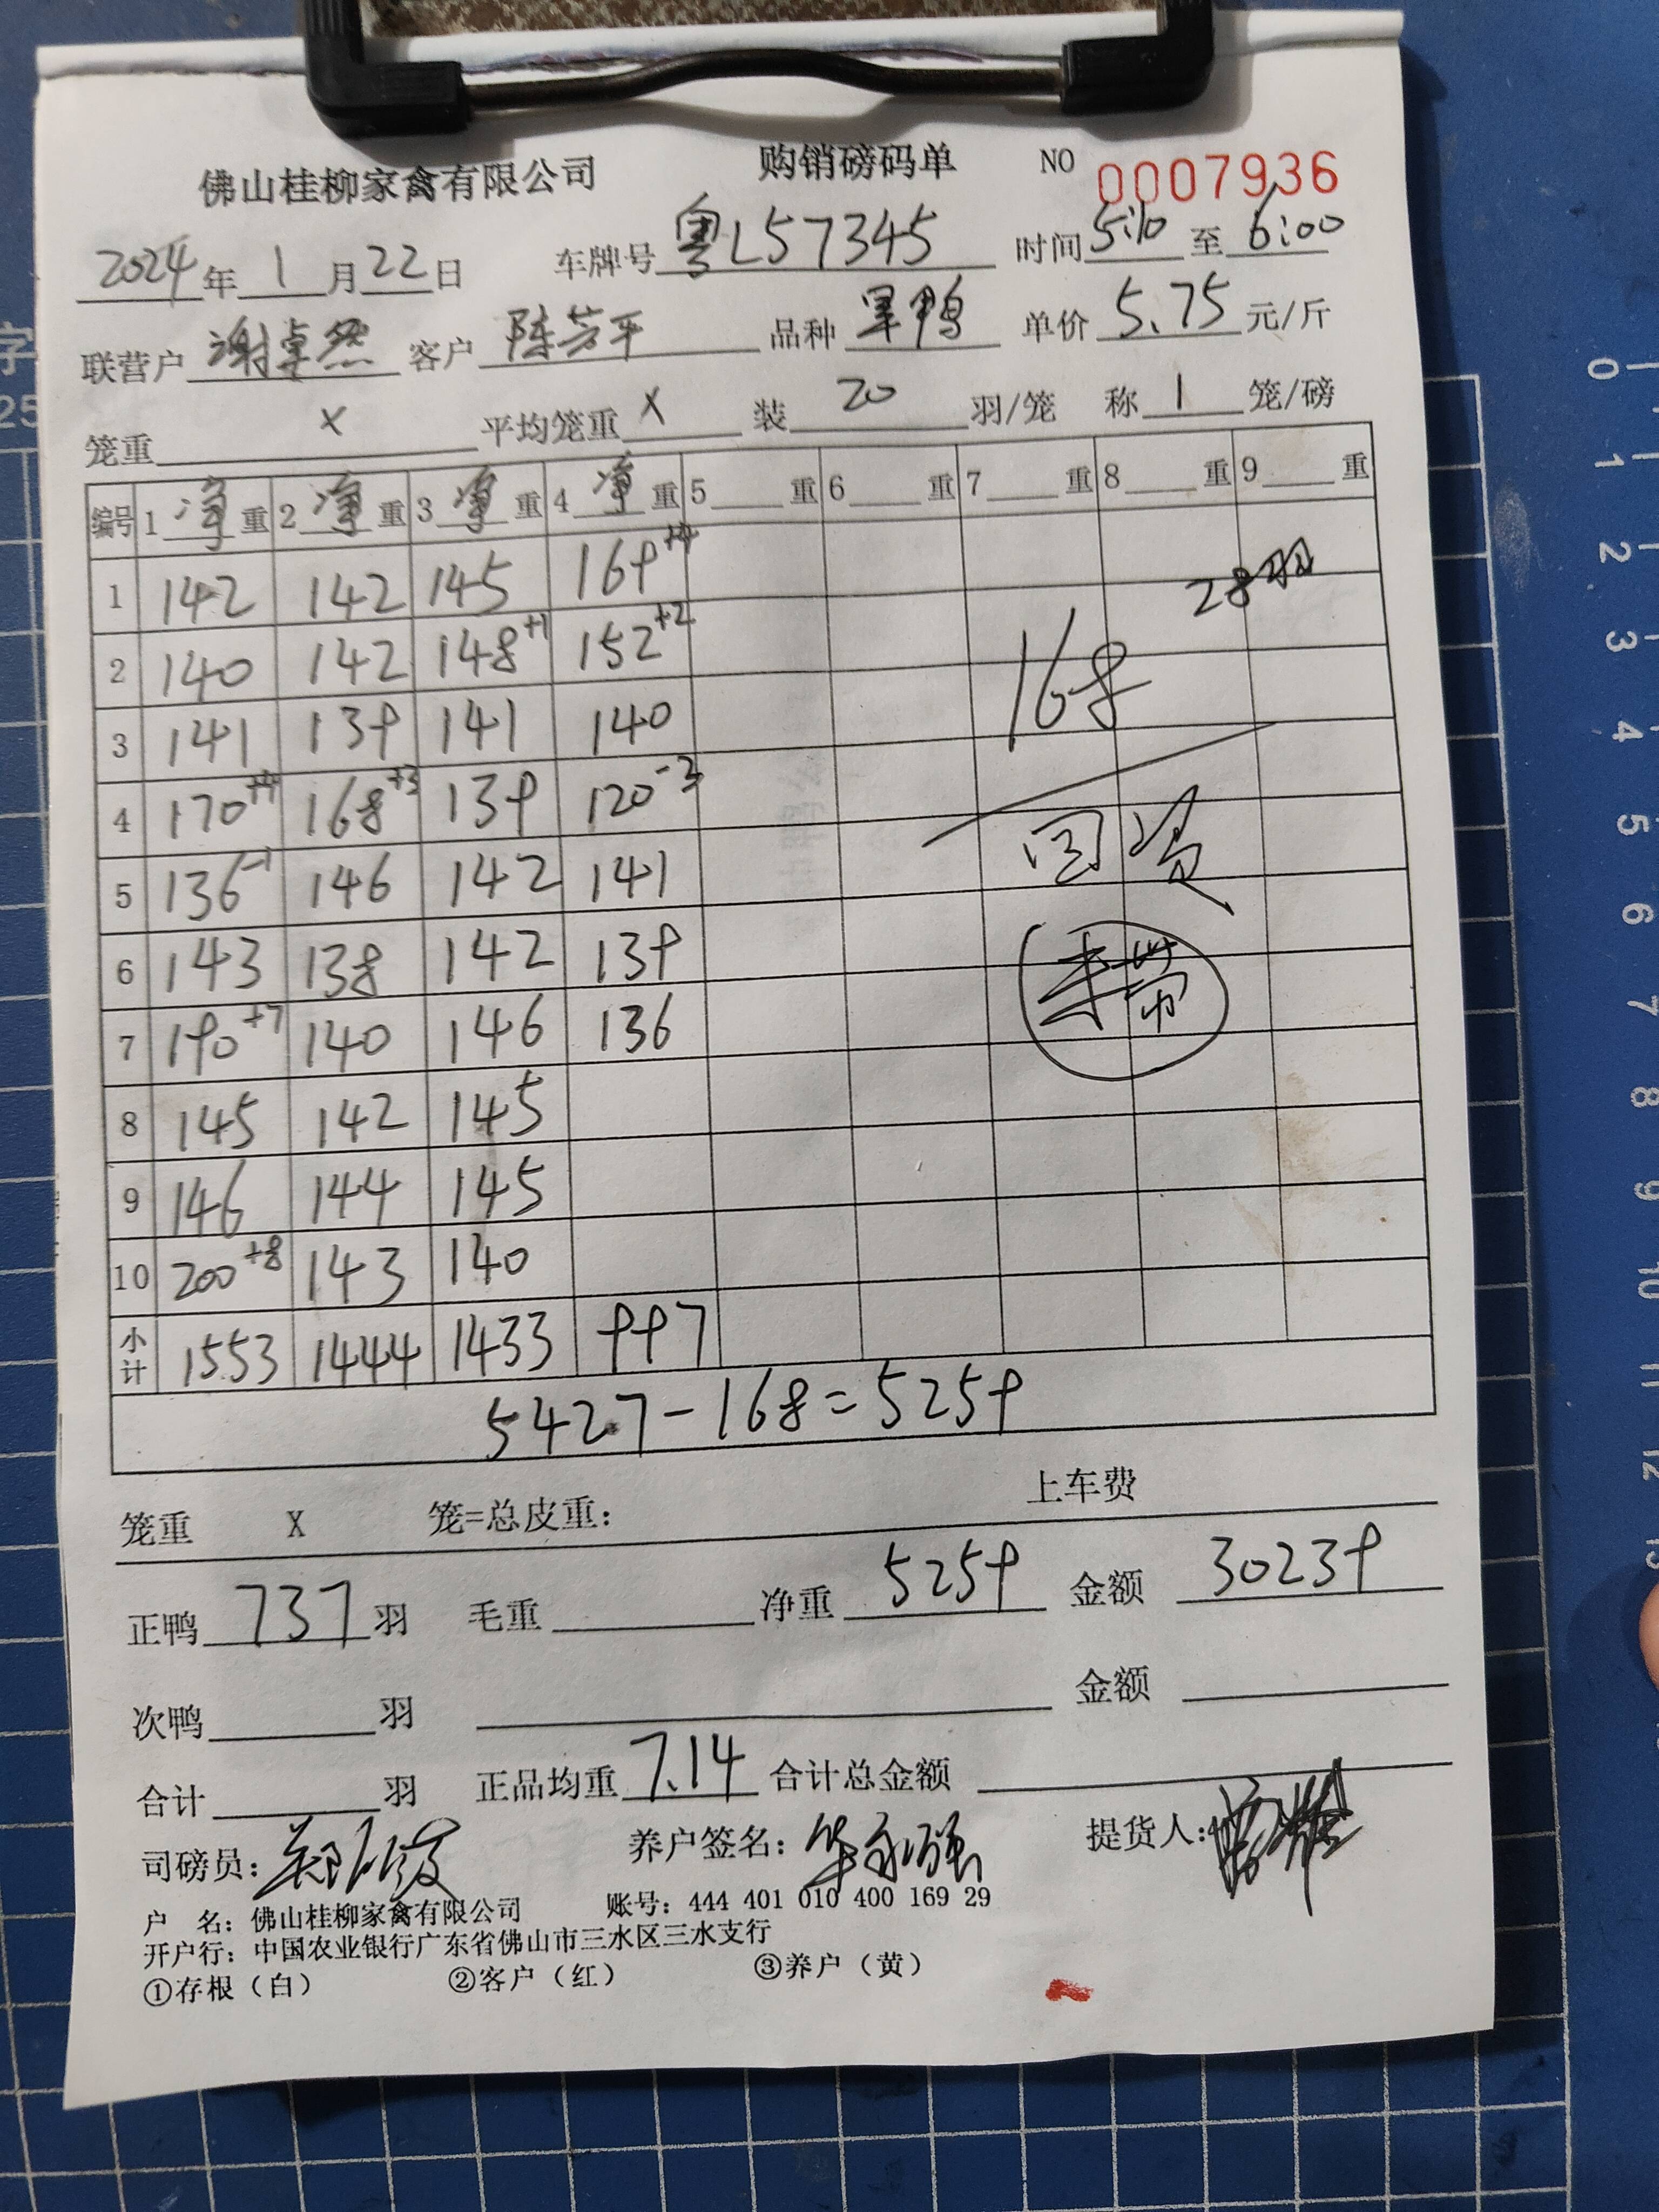 佛山桂柳家禽有限公司 购销磅码单 NO 0007936
2024年1月22日 车牌号 粤L57345 时间 5:10 至 6:00
联营户 谢卓然 客户 陈芳平 品种 旱鸭 单价 5.75 元/斤
笼重 x 平均笼重 x 装 20 羽/笼 称 1 笼/磅
编号 1 净 重 2 净 重 3 净 重 4 净 重 5 重 6 重 7 重 8 重 9 重
1 142 142 145 169+4
28羽
2 140 142 148+1 152+2
168
3 141 139 141 140
4 170+4 168+3 139 120-3
回资
5 136-1 146 142 141
6 143 138 142 139
7 190+7 140 146 136
8 145 142 145
9 146 144 145
10 200+8 143 140
小计 1553 1444 1433 997
5427-168=5259
笼重 X 笼=总皮重: 上车费
正鸭 737 羽 毛重 净重 5259 金额 30239
次鸭 羽 金额
合计 羽 正品均重 7.14 合计总金额
司磅员: 养户签名: 提货人:
户 名: 佛山桂柳家禽有限公司 账号: 444 401 010 400 169 29
开户行: 中国农业银行广东省佛山市三水区三水支行
①存根（白） ②客户（红） ③养户（黄）
字
25
0
1
2
3
4
5
6
7
8
9
10
11
12
13